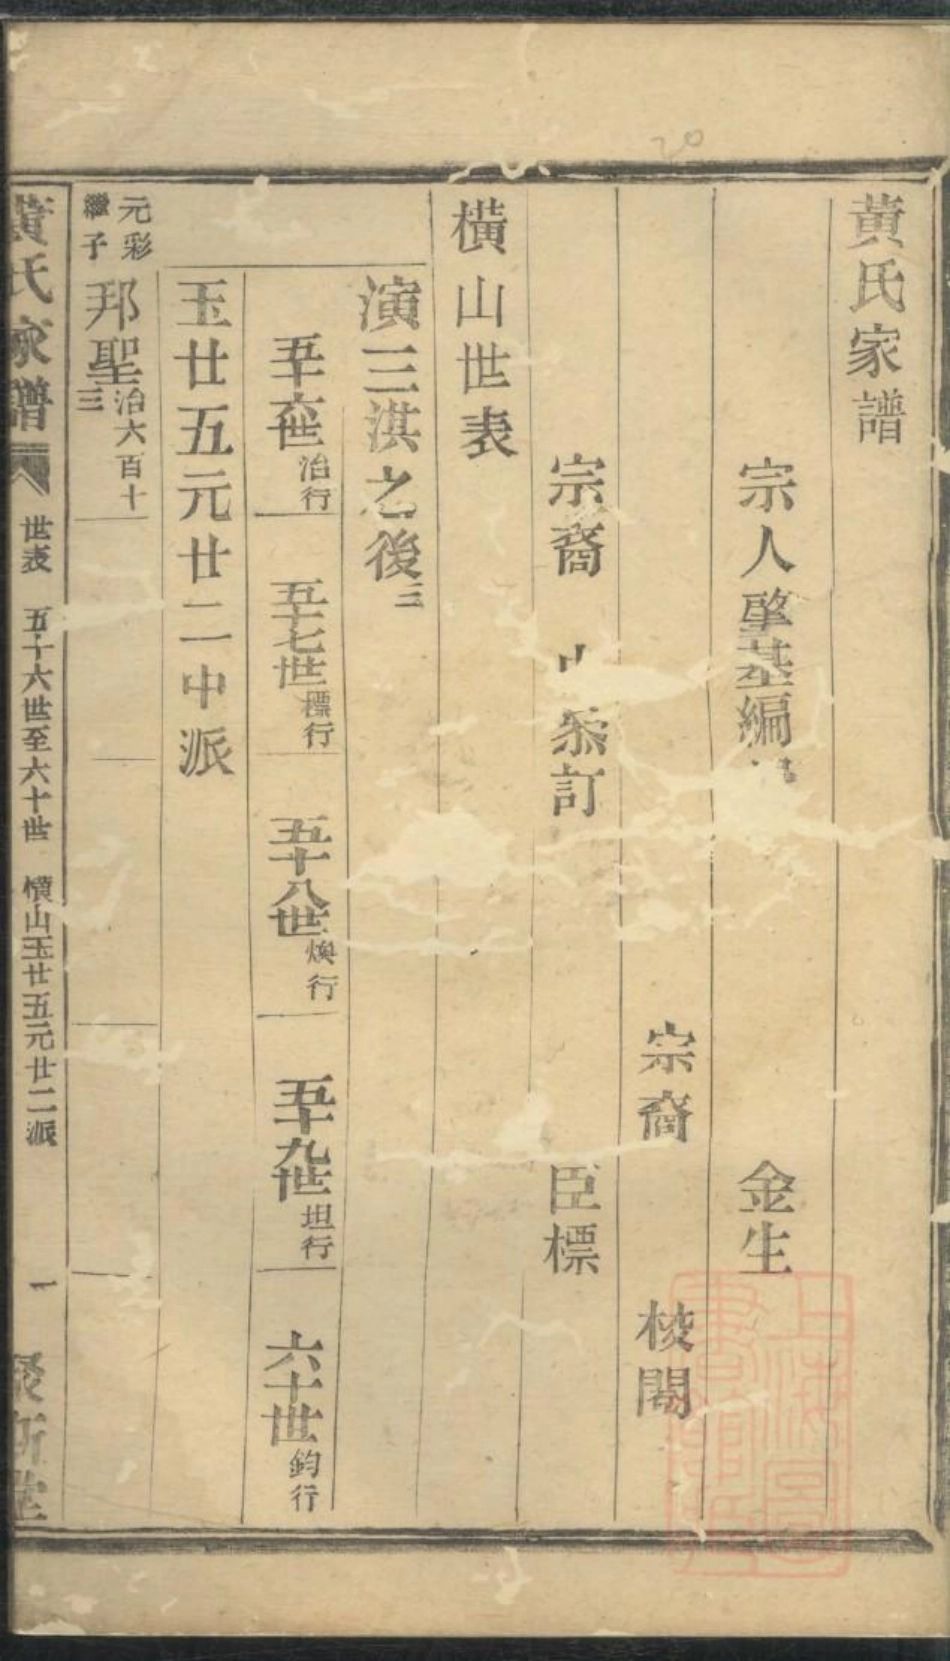 黄氏家譜
宗人肇基編
金生
宗裔
校閱
宗裔
叅訂
臣標
橫山世表
演三淇之後三
五十六世治行
五十七世標行
五十八世煥行
五十九世坦行
六十世鈞行
玉廿五元廿二中派
元彩
繼子
邦聖治六百十三
黄氏家譜
世表
五十六世至六十世
橫山玉廿五元廿二派
一
聚斯堂
上海圖書館藏
20